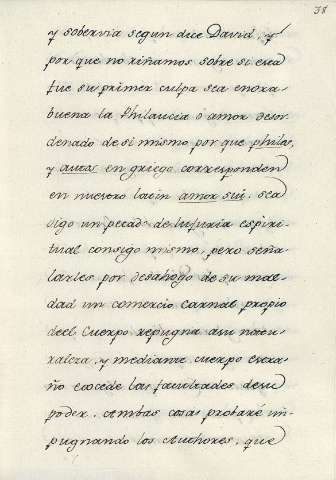 38
y sobervia segun dice David, y
por que no riñamos sobre si esta
fue su primer culpa sea enora-
buena la Philaucia ó amor desor-
denado de si mismo por que philos,
y autos en griego corresponden
en nuestro latin amor sui. sea
digo un pecado de lujuria espiri-
tual consigo mismo, pero seña-
larles por desahogo de su mal-
dad un comercio carnal propio
del Cuerpo repugna a su natu-
raleza. y mediante cuerpo estra-
ño excede las facultades de su
poder. Ambas cosas probaré im-
pugnando los Authores, que